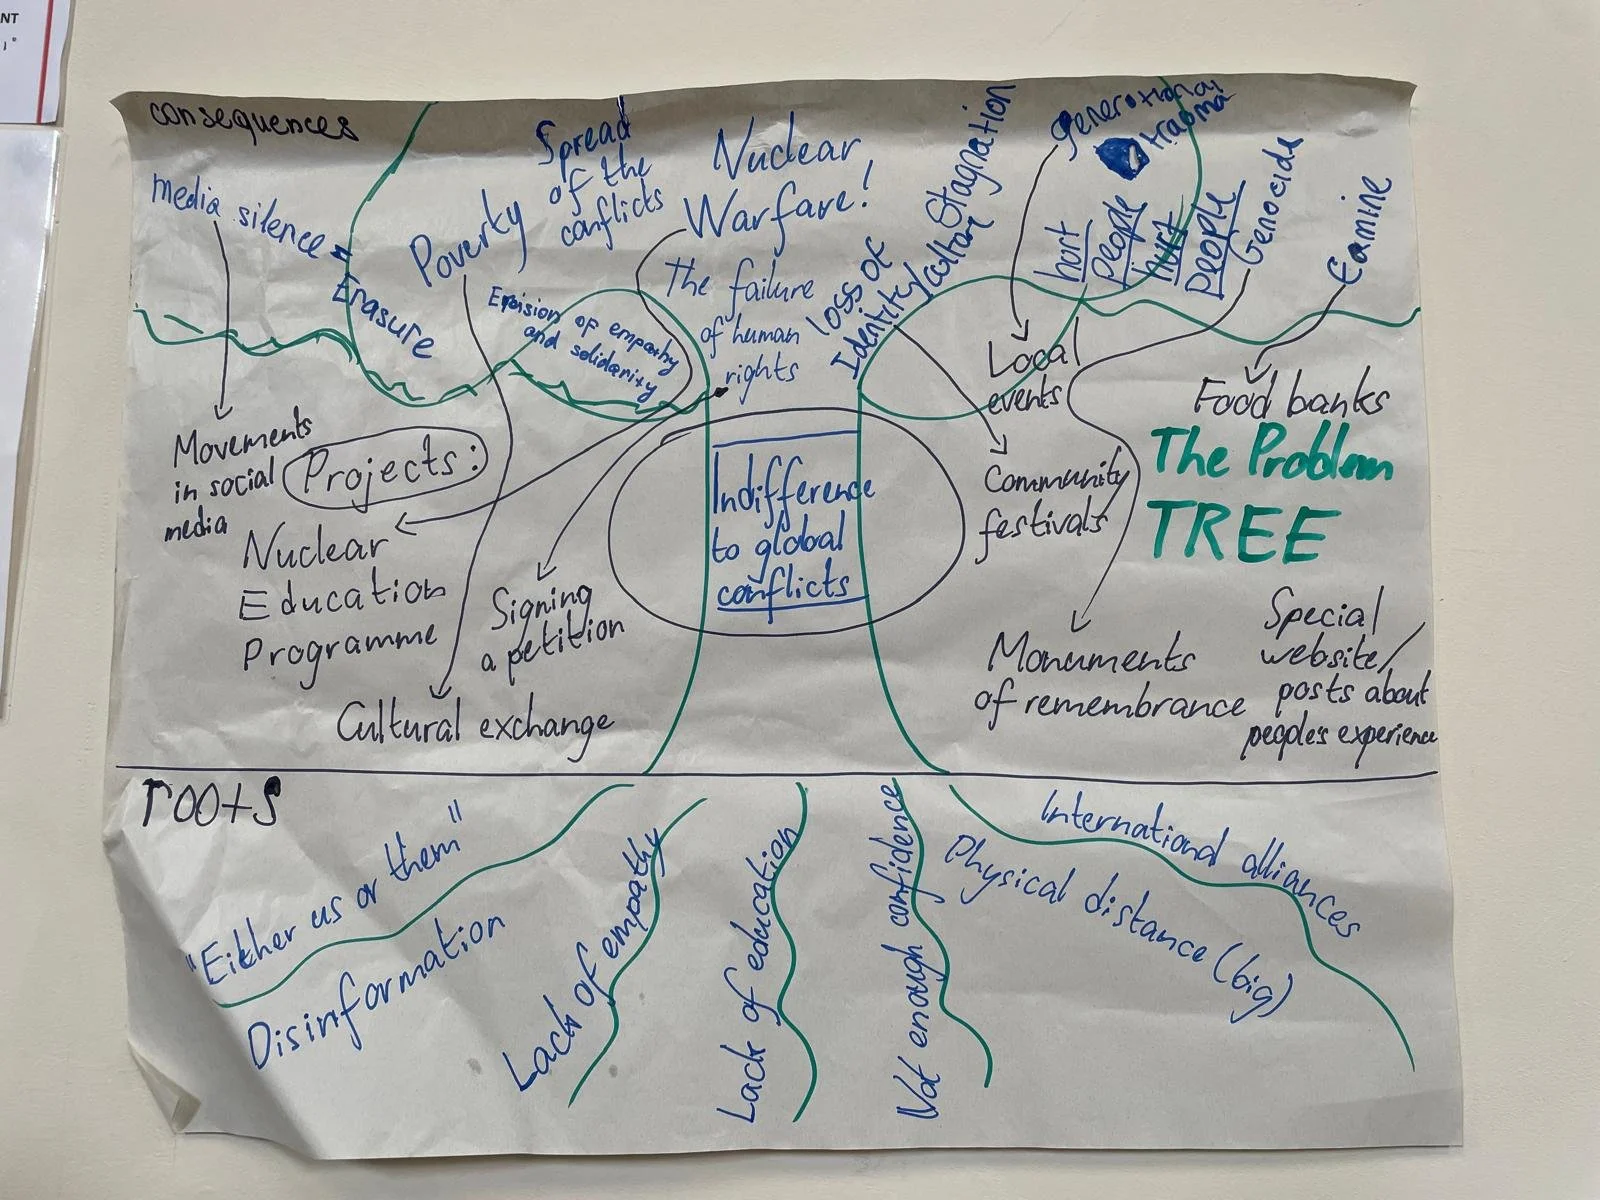 NT
consequences
media silence
Erasure
Poverty
Spread
of the
conflicts
Nuclear
Warfare!
Erosion of empathy
and solidarity
The failure
of human
rights
loss of
Identity/culture
Stagnation
generational
trauma
hurt
people
hurt
people
Genocide
Famine
Movements
in social
media
Projects:
Nuclear
Education
Programme
Signing
a petition
Cultural exchange
Indifference
to global
conflicts
Local
events
Community
festivals
Food banks
The Problem
TREE
Monuments
of remembrance
Special
website/
posts about
people's experience
roots
"Either us or them"
Disinformation
Lack of empathy
Lack of education
Not enough confidence
International alliances
Physical distance (big)